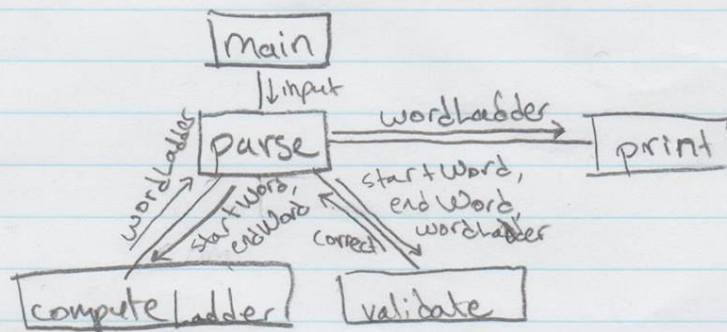 main
input
wordLadder
parse
print
wordLadder
startWord,
endWord
startWord,
endWord,
wordLadder
correct
computeLadder
validate